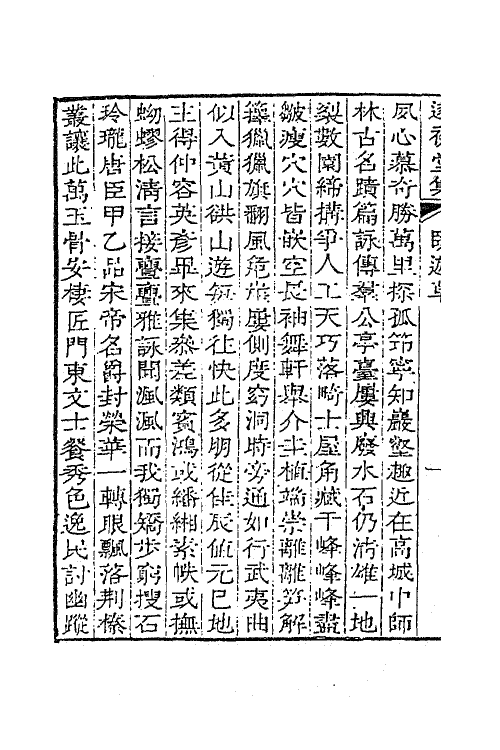 夙心慕奇勝萬里探孤筇寧知巖壑趣近在高城中師
林古名蹟篇詠傳羣公亭臺屢興廢水石仍清雄一地
裂數園締搆爭人工天巧落畸士屋角藏千峰峰峰盡
皴瘦穴穴皆嵌空長袖舞軒舉介圭植端崇離離笏解
籜獵獵旗翻風危旌屢側度窈洞時旁通如行武夷曲
似入黄山谼山遊每獨往快此多朋從佳辰値元巳地
主得仲容英彥畢來集叅差類賓鴻或繙緗素帙或撫
蚴蟉松清言接亹亹雅詠聞渢渢而我獨矯步窮搜石
玲瓏唐臣甲乙品宋帝名爵封榮華一轉眼飄落荆榛
叢讓此萬玉骨安棲匠門東文士餐秀色逸民討幽蹤